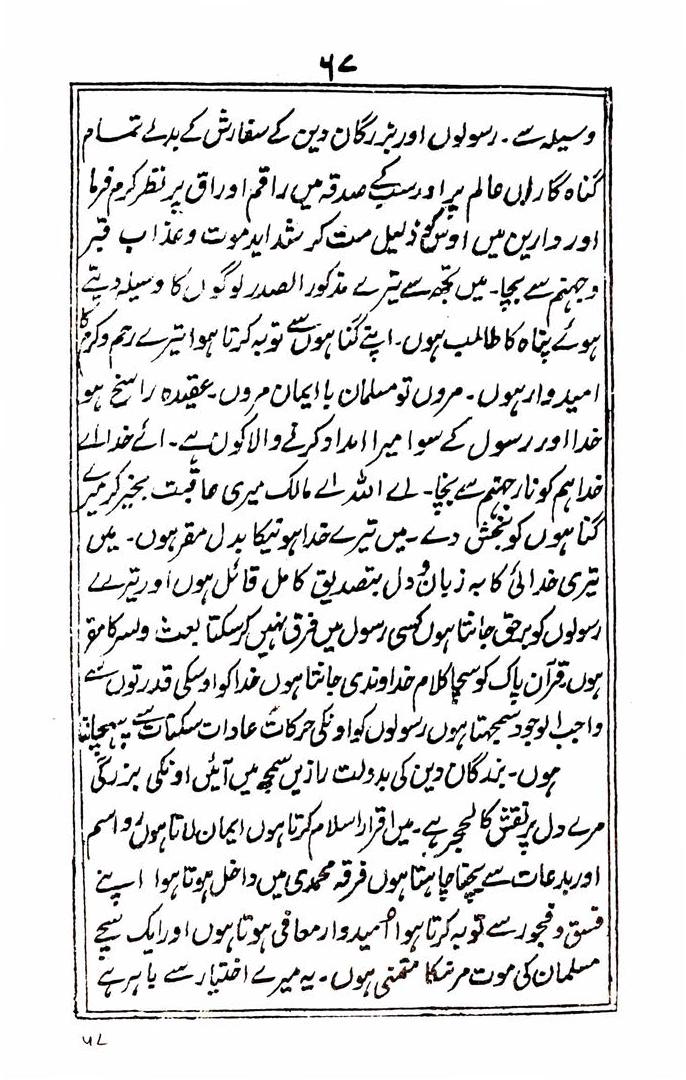 ۶۷
وسیلہ سے۔ رسولوں اور بزرگان دین کے سفارش کے بدلے تمام
گناہ گاران عالم پر اور سب کے صدقہ میں راقم اوراق پر نظر کرم فرما
اور دارین میں اوس کو ذلیل مت کر شداید موت و عذاب قبر
و جہنم سے بچا۔ میں تجھ سے تیرے مذکور الصدر لوگوں کا وسیلہ دیتے
ہوئے پناہ کا طالب ہوں۔ اپنے گناہوں سے توبہ کرتا ہوا تیرے رحم و کرم کا
امیدوار ہوں۔ مروں تو مسلمان با ایمان مروں۔ عقیدہ راسخ ہو
خدا اور رسول کے سوا میرا امداد کرنے والا کون ہے۔ ائے خدا اے
خدا ہم کو نار جہنم سے بچا۔ اے اللہ اے مالک میری عاقبت بخیر کر میرے
گناہوں کو بخش دے۔ میں تیرے خدا ہونیکا بدل مقر ہوں۔ میں
تیری خدائی کا بہ زبان و دل بتصدیق کامل قائل ہوں اور تیرے
رسولوں کو برحق جانتا ہوں کسی رسول میں فرق نہیں کر سکتا بعث و نسر کا مقر
ہوں۔ قرآن پاک کو سچا کلام خداوندی جانتا ہوں خدا کو اوسکی قدرتوں سے
واجب الوجود سمجہتا ہوں رسولوں کو اونکی حرکات عادات سکنات سے پہچانتا
ہوں۔ بزرگان دین کی بدولت رازیں سمجھ میں آئیں اونکی بزرگی
مرے دل پر نقش کالحجر ہے۔ میں اقرار اسلام کرتا ہوں ایمان لاتا ہوں رواسم
اور بدعات سے بچنا چاہتا ہوں فرقہ محمدی میں داخل ہوتا ہوا اپنے
فسق و فجور سے توبہ کرتا ہوا امیدوار معافی ہوتا ہوں اور ایک سچے
مسلمان کی موت مرنیکا متمنی ہوں۔ یہ میرے اختیار سے باہر ہے
۶۷